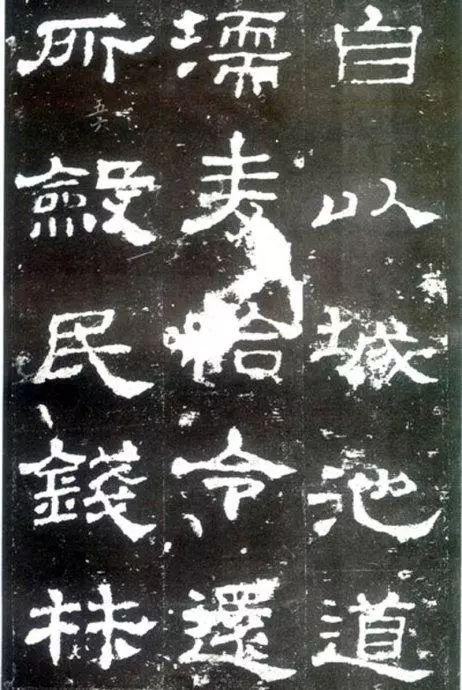 自以城池道
壖麦給令還
所斂民錢材